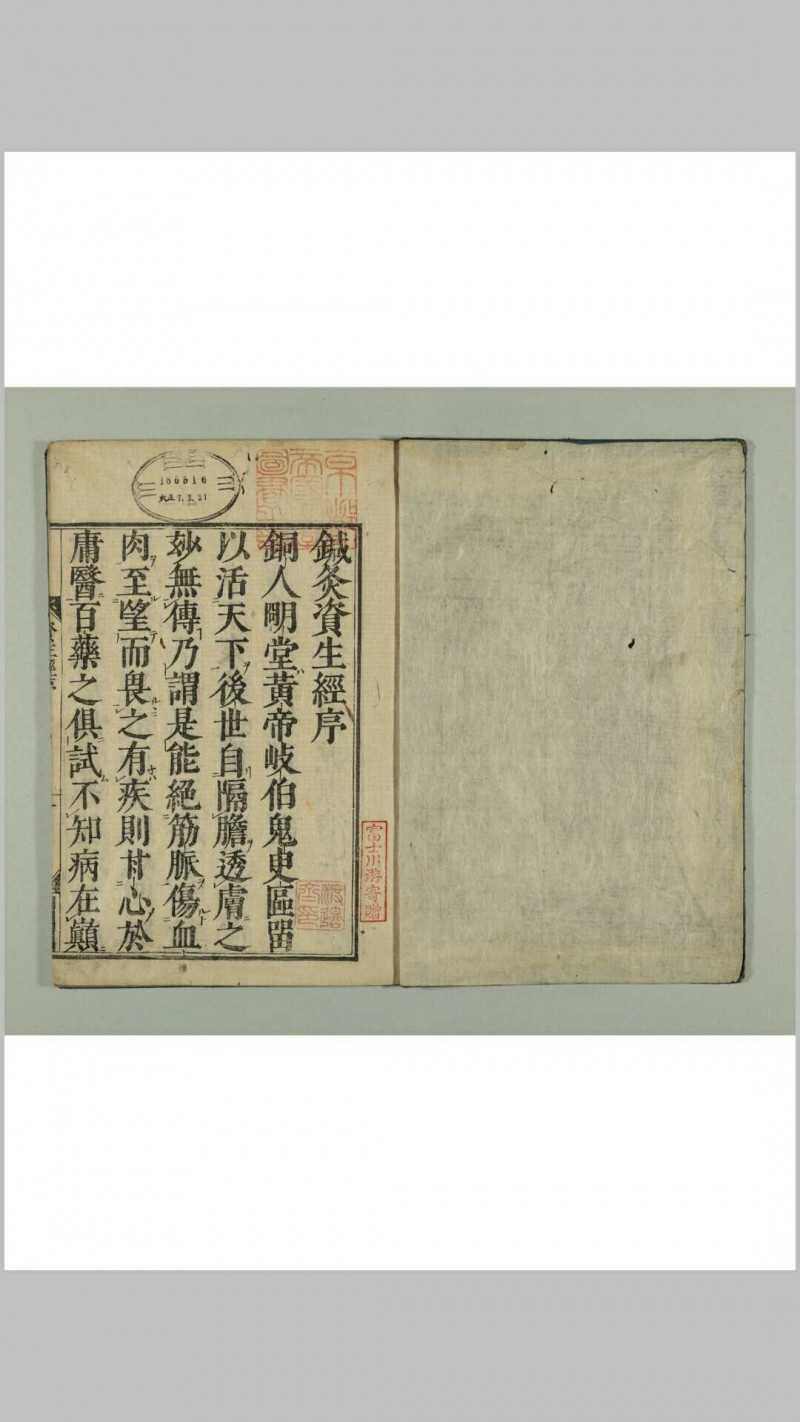 鍼灸資生經序
銅人明堂黃帝岐伯鬼史區畱
以活天下後世自隔膽透膚之
妙無傳乃謂是能絕筋脈傷血
肉至望而畏之有疾則甘心於
庸醫百藥之俱試不知病在巔
富士川游寄贈
186816
大正7.3.31